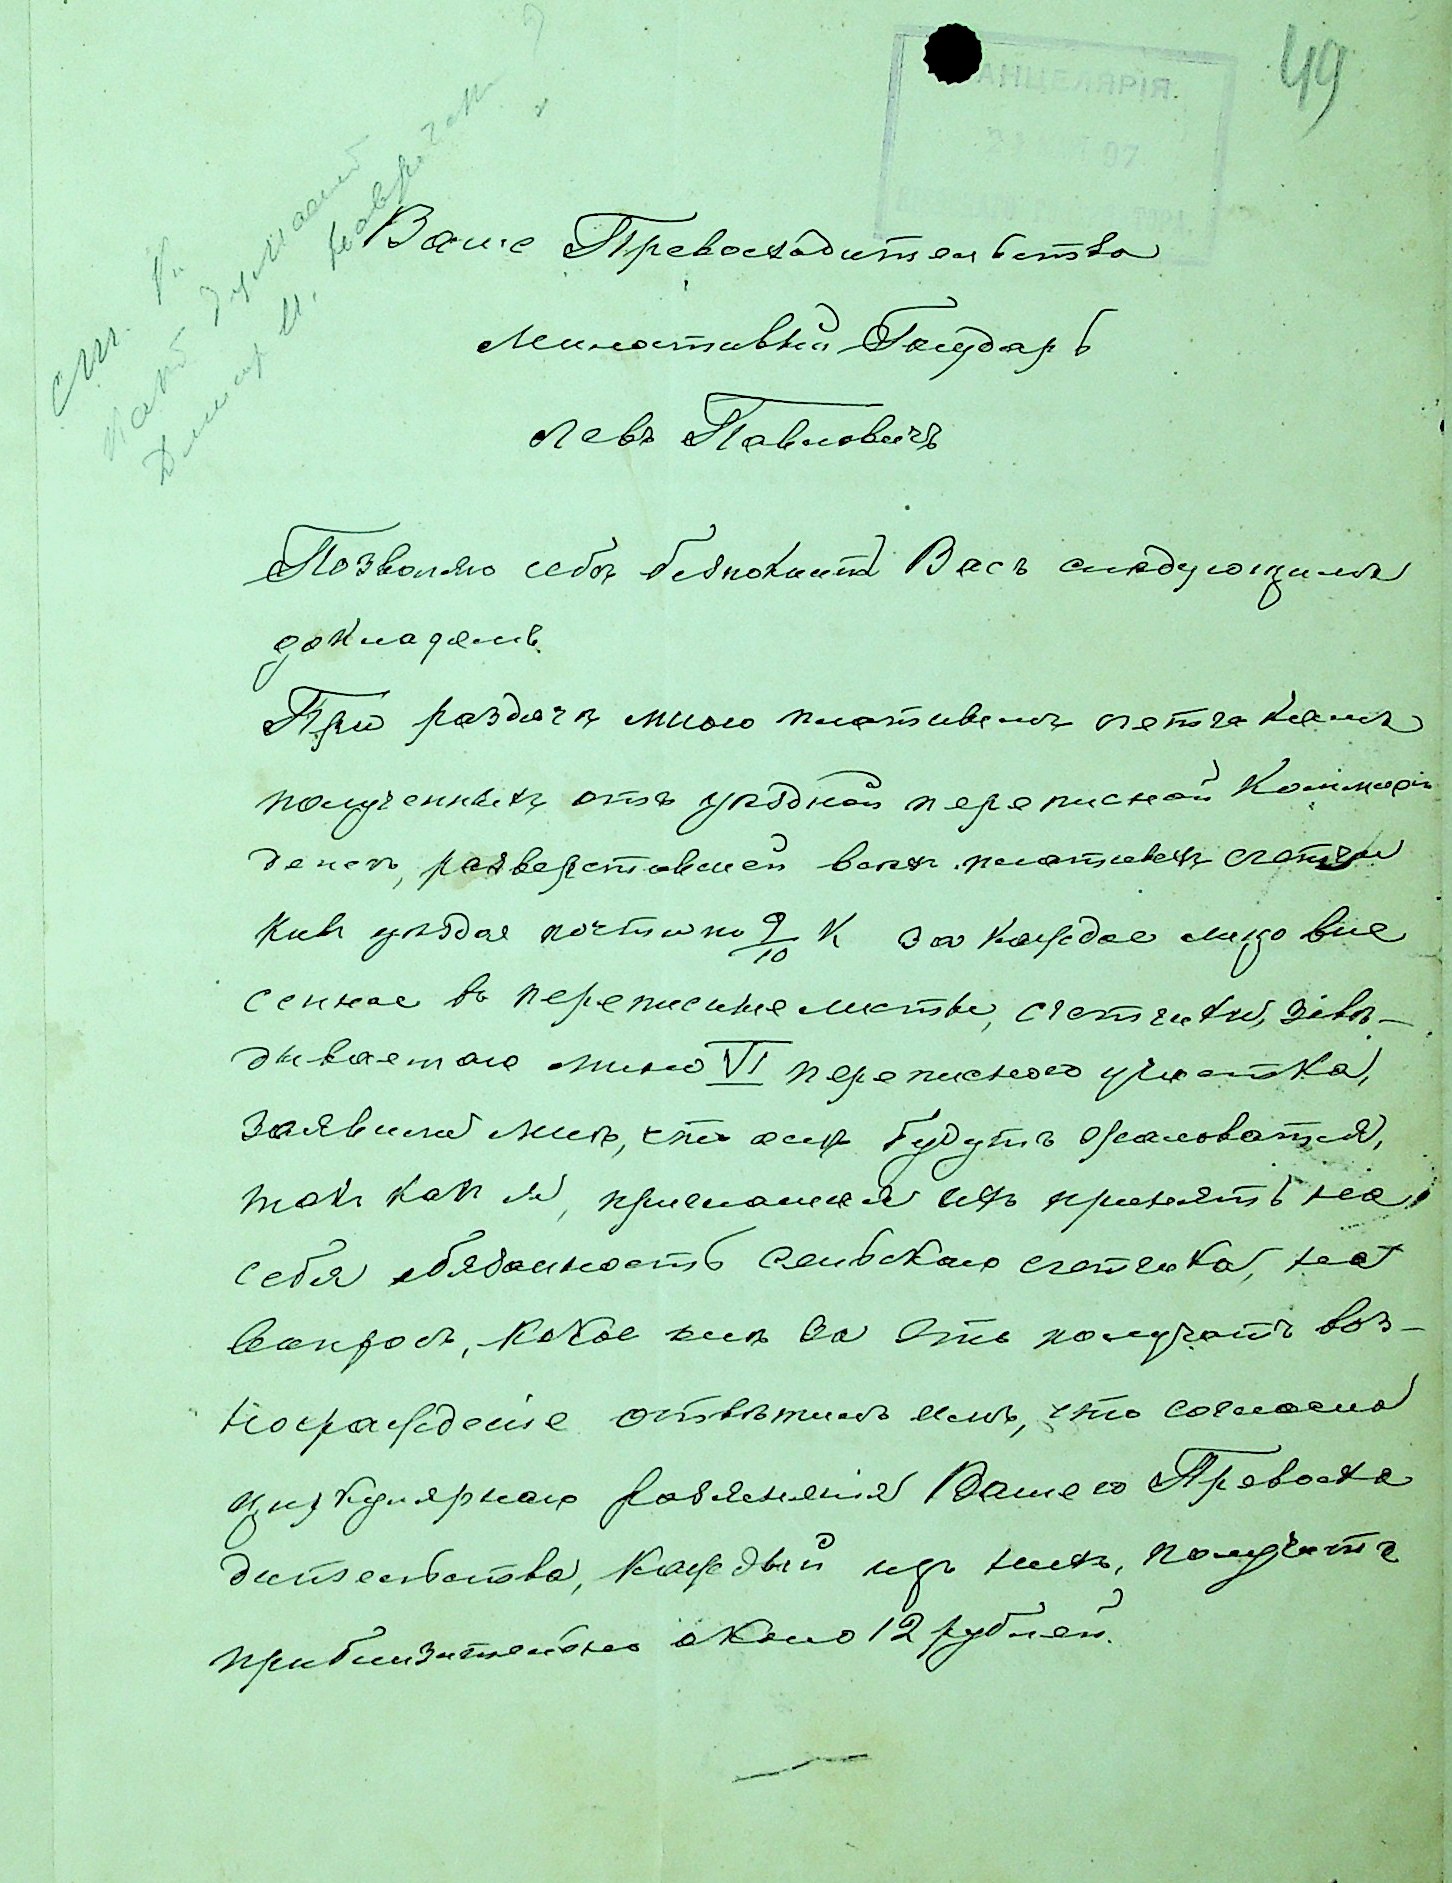 49
АНЦЕЛЯРІЯ.
97
Ваше Превосходительство
Милостивый Государь
Левъ Павловичъ
Позволяю себѣ безпокоить Васъ слѣдующимъ
докладомъ.
При раздачѣ мною платнымъ счетчикамъ
полученныхъ отъ уѣздной переписной Коммисіи
денегъ, разверставшей всѣхъ платныхъ счетчи
ковъ уѣзда почти по 9/10 К за каждое лицо вне
сенное въ переписные листы, счетчики, завѣ-
дываемаго мною VI переписного участка,
заявили мнѣ, что они будутъ жаловаться,
такъ какъ я, приглашая ихъ принять на
себя обязанность сельскаго счетчика, на
вопросъ, какое они за это получатъ воз-
награжденіе отвѣтилъ имъ, что согласно
циркулярнаго разъясненія Вашего Превосхо
дительства, каждый изъ нихъ, получитъ
приблизительно около 12 рублей.